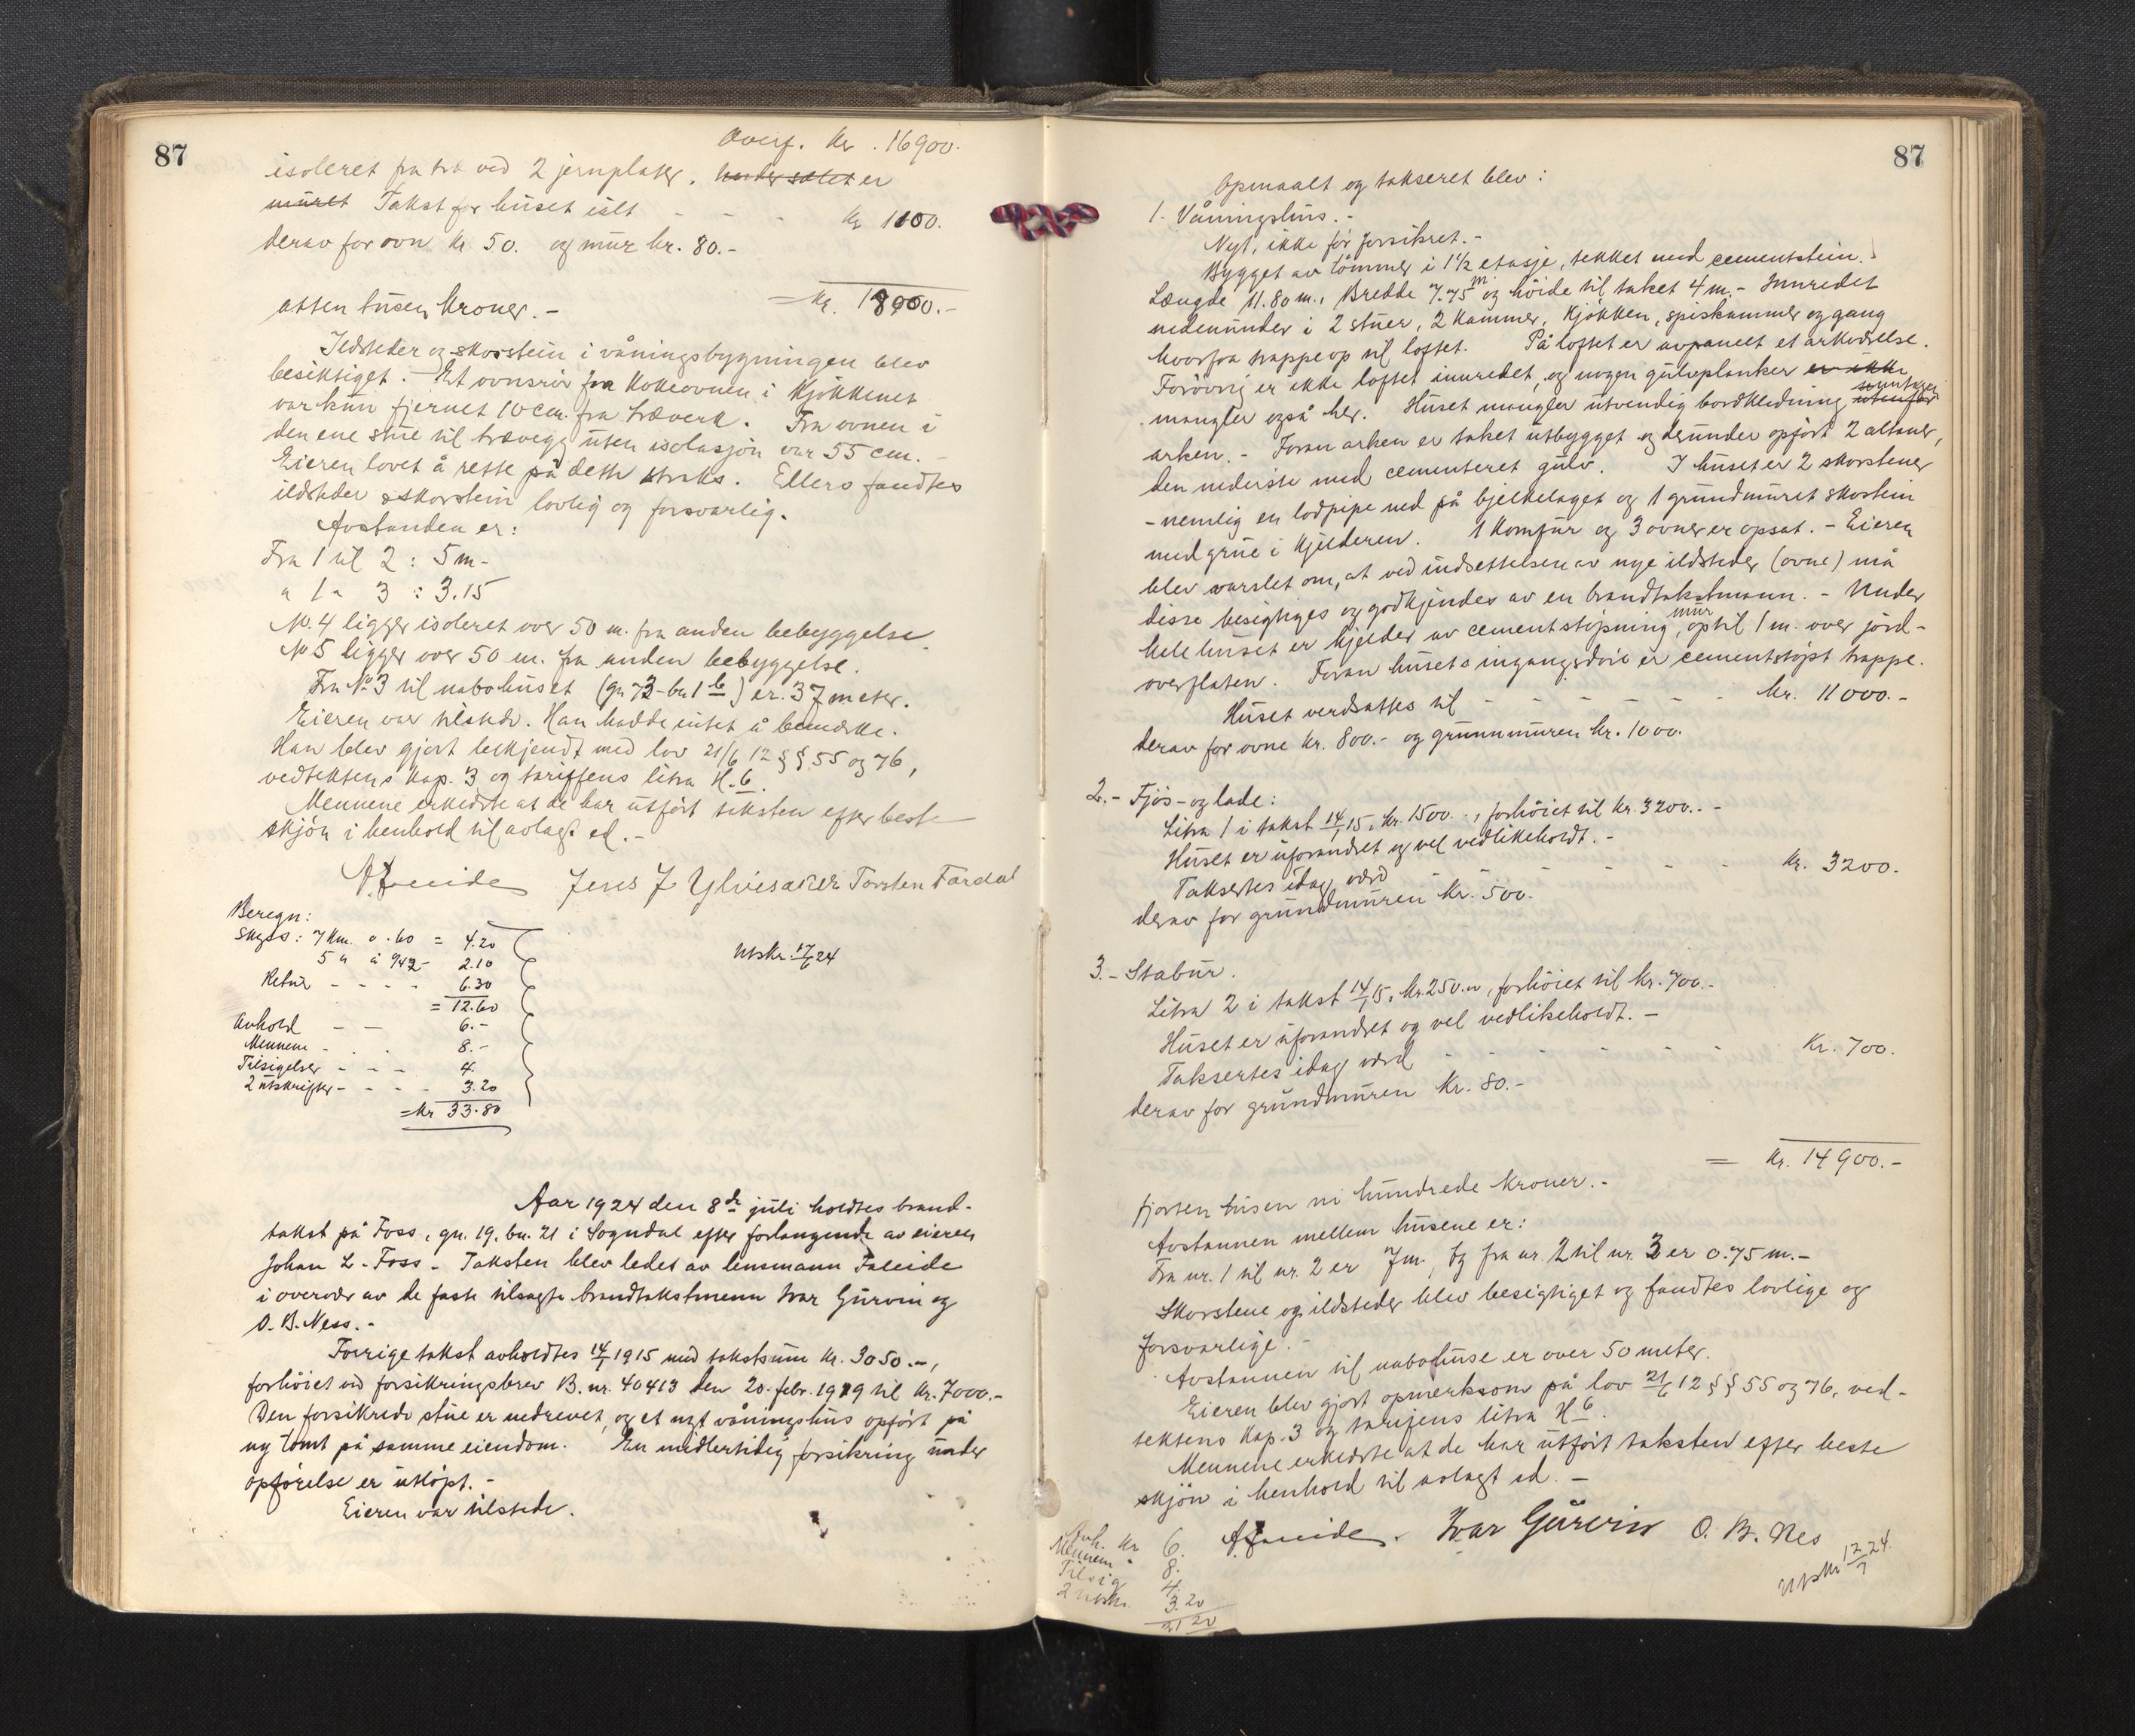 87
Overf. Kr. 16900.
isoleret fra træ ved 2 jernplater. er
muret Takst for huset ialt - - - Kr 1100.
derav for ovn Kr 50. og mur kr. 80.-
= Kr. 18000.-
atten tusen kroner.-
Ildsteder og skorstein i våningsbygningen blev
besiktiget. - Et ovnsrör fra kokeovnen i Kjökkenet
var kun fjernet 10 cm. fra træverk. Fra ovnen i
den ene stue til trævegg uten isolasjon var 55 cm. -
Eieren lovet å rette på dette straks. Ellers fandtes
ildsteder o skorstein lovlig og forsvarlig.
Avstanden er:
Fra 1 til 2 : 5 m-
" 1 " 3 : 3.15
No. 4 ligger isoleret over 50 m. fra anden bebyggelse
No 5 ligger over 50 m. fra anden bebyggelse.
Fra No 3 til nabohuset (gn 73 - bn 1 b) er. 37 meter.
Eieren var tilstede. Han hadde intet å bemerke.
Han blev gjort bekjendt med lov 21/6 12 §§ 55 og 76,
vedtektens kap. 3 og tariffens litra H. 6.
Mennene erklærte at de har utfört taksten efter beste
skjön i henhold til avlagt ed. -
A Faleide Jens J Ylvisaker Torsten Fardal
Beregn:
Skyss: 7 Km. a .60 = 4.20
5 " à 942- 2.10
Retur - - - - 6.30
= 12.60
Avhold - - 6.-
Mennene - . . 8.-
Tilsigelser - - - 4.
2 utskrifter - - - - 3.20
= kr 33.80
Utskr. 17/6 24
Aar 1924 den 8de juli holdtes brand-
takst på Foss, gn. 19. bn. 21 i Sogndal efter forlangende av eieren
Johan L. Foss. - Taksten blev ledet av lensmann Faleide
i overvær av de faste tilsagte brandtakstmenn Ivar Gurvin og
O. B. Ness. -
Forrige takst avholdtes 14/1 1915 med takstsum kr. 3050.-,
forhöiet ved forsikringsbrev B. nr. 40413 den 20. febr. 1919 til kr. 7000.-
Den forsikrede stue er nedrevet, og et nyt våningshus opfört på
ny tomt på samme eiendom. En midlertidig forsikring under
opförelse er utlöpt. -
Eieren var tilstede.
87
Opmaalt og takseret blev:
1. Våningshus. -
Nyt, ikke för forsikret. -
Bygget av tömmer i 1½ etasje, tekket med cementstein.
Længde 11.80 m., Bredde 7.75 m og höide til taket 4 m. - Innredet
nedenunder i 2 stuer, 2 kammer, kjökken, spiskammer og gang
hvorfra trappe op til loftet. På loftet er avpanelt et arkværelse.
Forövrig er ikke loftet innredet, og nogen gulvplanker er ikke
mangler også her. Huset mangler utvendig bordklædning
arken. - Foran arken er taket utbygget og derunder opfört 2 altaner,
den nederste med cementeret gulv. I huset er 2 skorstener
- nemlig en lodpipe ned på bjelkelaget og 1 grundmuret skorstein
med grue i kjelderen. 1 komfur og 3 ovner er opsat. - Eieren
blev varslet om, at ved indsettelsen av nye ildsteder (ovne) må
disse besigtiges og godkjendes av en brandtakstmann. - Under
hele huset er kjelder av cementstöpning mur, optil 1 m. over jord-
overflaten. Foran husets ingangsdör er cementstöpt trappe.
Huset verdsattes til - - - - - - kr. 11000.-
derav for ovne kr. 800.- og grunnmuren kr. 1000.
2.- Fjös- og lade:
Litra 1 i takst 14/1 15, kr. 1500.-, forhöiet til kr. 3200.-
Huset er uforandret og vel vedlikeholdt. -
Taksertes idag værd - - - - - Kr. 3200.
derav for grundmuren kr. 500.
3.- Stabur.
Litra 2 i takst 14/1 15, kr. 250.-, forhöiet til kr. 700.-
Huset er uforandret og vel vedlikeholdt. -
Taksertes idag værd - - - - - - Kr. 700.
derav for grundmuren kr. 80.-
= Kr. 14900.-
fjorten tusen ni hundrede kroner. -
Avstannen mellem husene er:
Fra nr. 1 til nr. 2 er 7 m., og fra nr. 2 til nr. 3 er 0.75 m. -
Skorstene og ildsteder blev besigtiget og fandtes lovlige og
forsvarlige. -
Avstannen til nabohuse er over 50 meter.
Eieren blev gjort opmerksom på lov 21/6 12 §§ 55 og 76, ved-
tektens kap. 3 og tarifens litra H 6.
Mennene erklærte at de har utfört taksten efter beste
skjön i henhold til avlagt ed. -
A Faleide. Ivar Gurvin O. B. Nes
Avh. kr 6.
Mennene " 8.
Tilsig 4.
2 utskr. 3.20
21 20
Utskr 12/7 24.